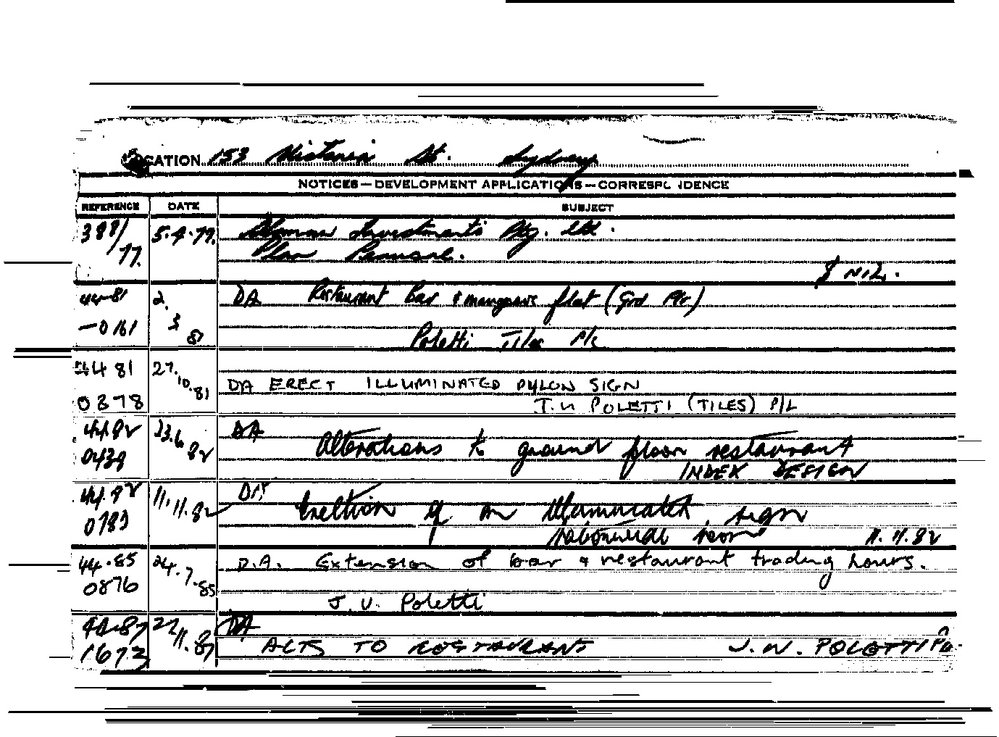 LOCATION 153 Victoria St. Sydney
NOTICES—DEVELOPMENT APPLICATIONS—CORRESPONDENCE
REFERENCE DATE SUBJECT
388/ 5.4.79. Investments Pty. Ltd.
77. Plan
$ NIL.
44-81 2. DA Restaurant Bar & managers flat (Grd Flr)
-0161 3
81 Poletti Tiles P/L
44 81 27.
10.81 DA ERECT ILLUMINATED PYLON SIGN
0378 J.V POLETTI (TILES) P/L
44.82 23.6 DA
0439 82 Alterations to ground floor restaurant
INDEX DESIGN
44.82 11.11.82 DA
0783 Erection of an illuminated sign
11.11.82
44.85 24.7 D.A. Extension of bar & restaurant trading hours.
0876 85
J.V. Poletti
44.87 27 DA
1673 11.87 ALTS TO RESTAURANT J.V. POLETTI P/L